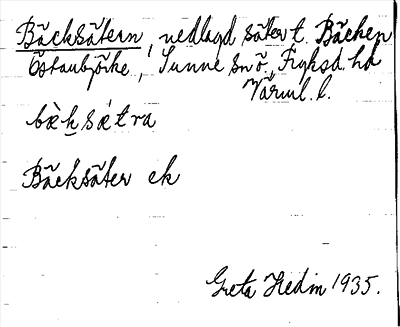 Bäcksätern, nedlagd säter t. Bäcken
Östanbjörke, Sunne sn ö, Fryksd. hd
Värml. l.
bæksætra
Bäcksäter ek
Greta Hedin 1935.